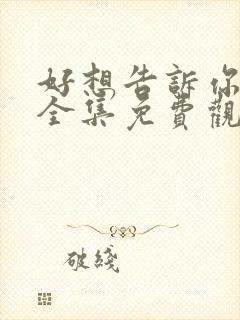 好想告訴你
全集免費觀
破綫